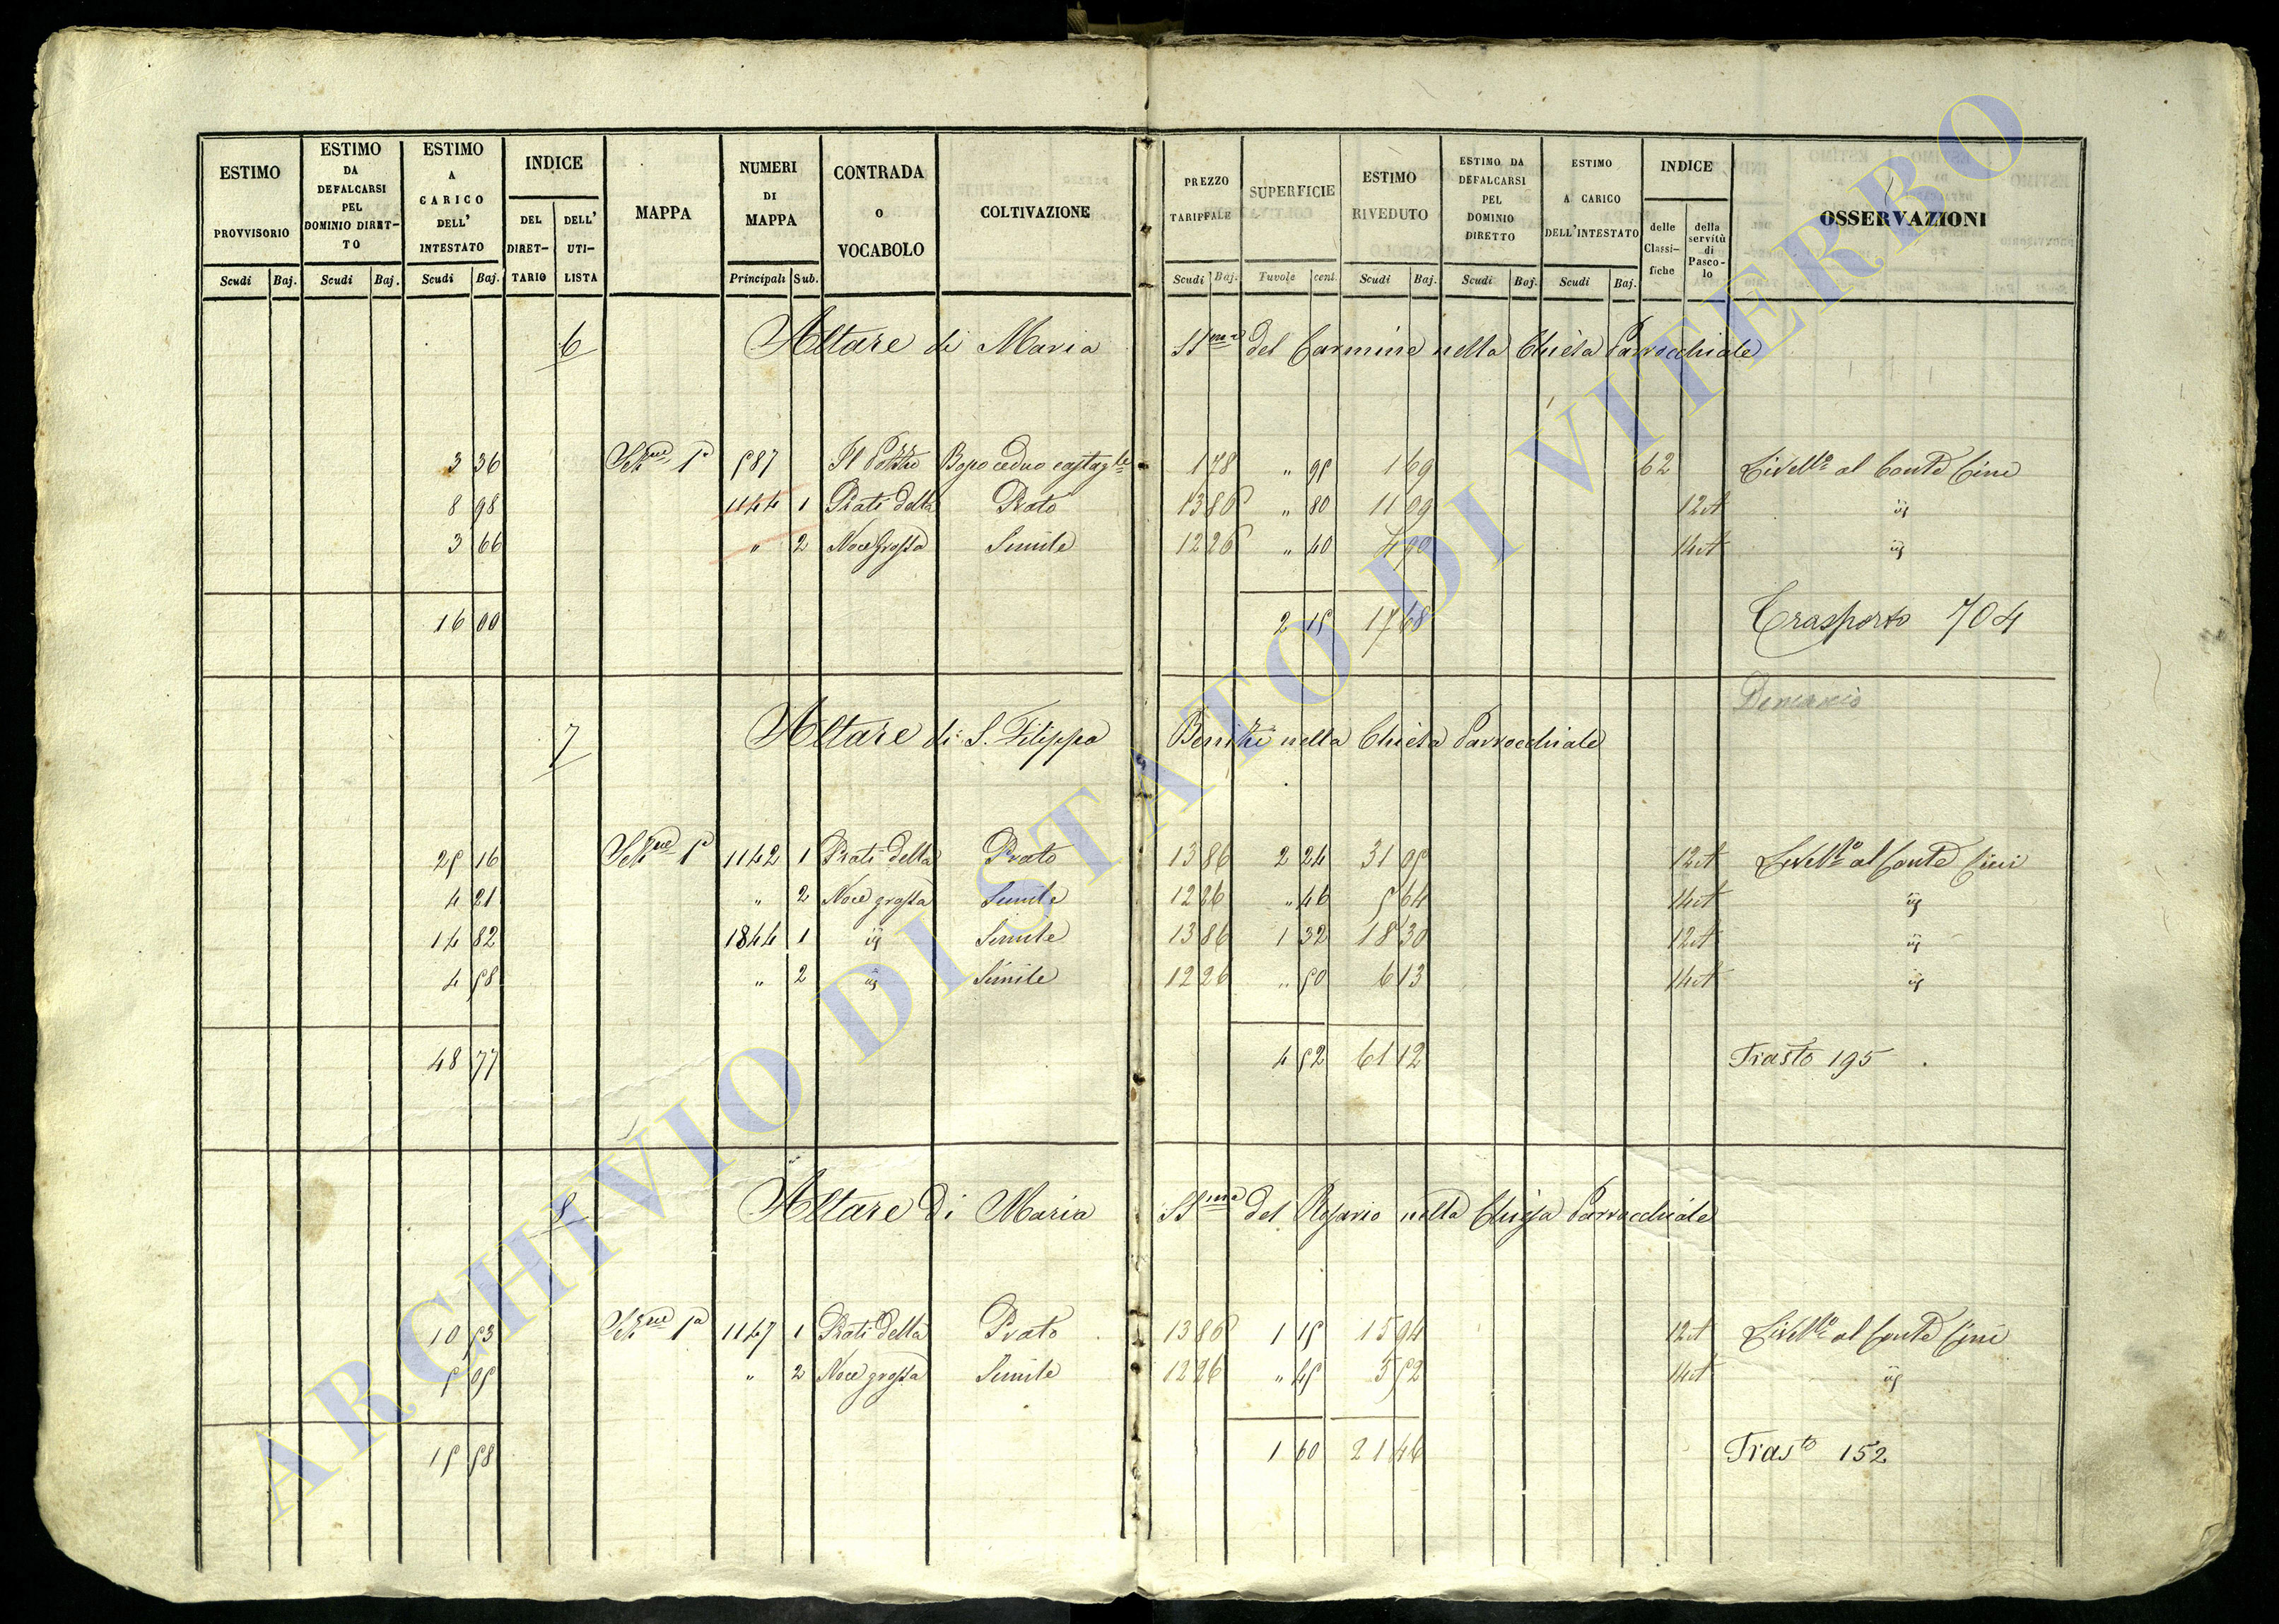 ESTIMO PROVVISORIO | ESTIMO DA DEFALCARSI PEL DOMINIO DIRETTO | ESTIMO A CARICO DELL' INTESTATO | INDICE | MAPPA | NUMERI DI MAPPA | CONTRADA O VOCABOLO | COLTIVAZIONE | PREZZO TARIFFALE | SUPERFICIE | ESTIMO RIVEDUTO | ESTIMO DA DEFALCARSI PEL DOMINIO DIRETTO | ESTIMO A CARICO DELL'INTESTATO | INDICE | OSSERVAZIONI
DEL DIRET-TARIO | DELL' UTI-LISTA | delle Classi-fiche | della servitù di Pasco-lo
Scudi | Baj. | Scudi | Baj. | Scudi | Baj. | Principali | Sub. | Scudi | Baj. | Tavole | cent. | Scudi | Baj. | Scudi | Baj. | Scudi | Baj.
6 Altare di Maria SSma del Carmine nella Chiesa Parrocchiale
3 36 Sezne 1a 587 Il Bosco ceduo castagle 1 78 " 95 1 69 62 Livello al Conte Cini
8 98 1144 1 Prati della Prato 13 86 " 80 11 09 12 et iij
3 66 " 2 Noce grossa Simile 12 26 " 40 4 90 14 et iij
16 00 2 15 17 68 Trasporto 704
7 Altare di S. Filippo Benizi nella Chiesa Parrocchiale
Demanio
25 16 Sezne 1a 1142 1 Prati della Prato 13 86 2 24 31 05 12 et Livello al Conte Cini
4 21 " 2 Noce grossa Simile 12 26 " 46 5 64 14 et iij
14 82 1844 1 iij Simile 13 86 1 32 18 30 12 et iij
4 58 " 2 iij Simile 12 26 " 50 6 13 14 et iij
48 77 4 52 61 12 Trasto 195
8 Altare di Maria SSma del Rosario nella Chiesa Parrocchiale
10 53 Sezne 1a 1147 1 Prati della Prato 13 86 1 15 15 94 12 et Livello al Conte Cini
5 05 " 2 Noce grossa Simile 12 26 " 45 5 52 14 et iij
15 58 1 60 21 46 Trasto 152
ARCHIVIO DI STATO DI VITERBO